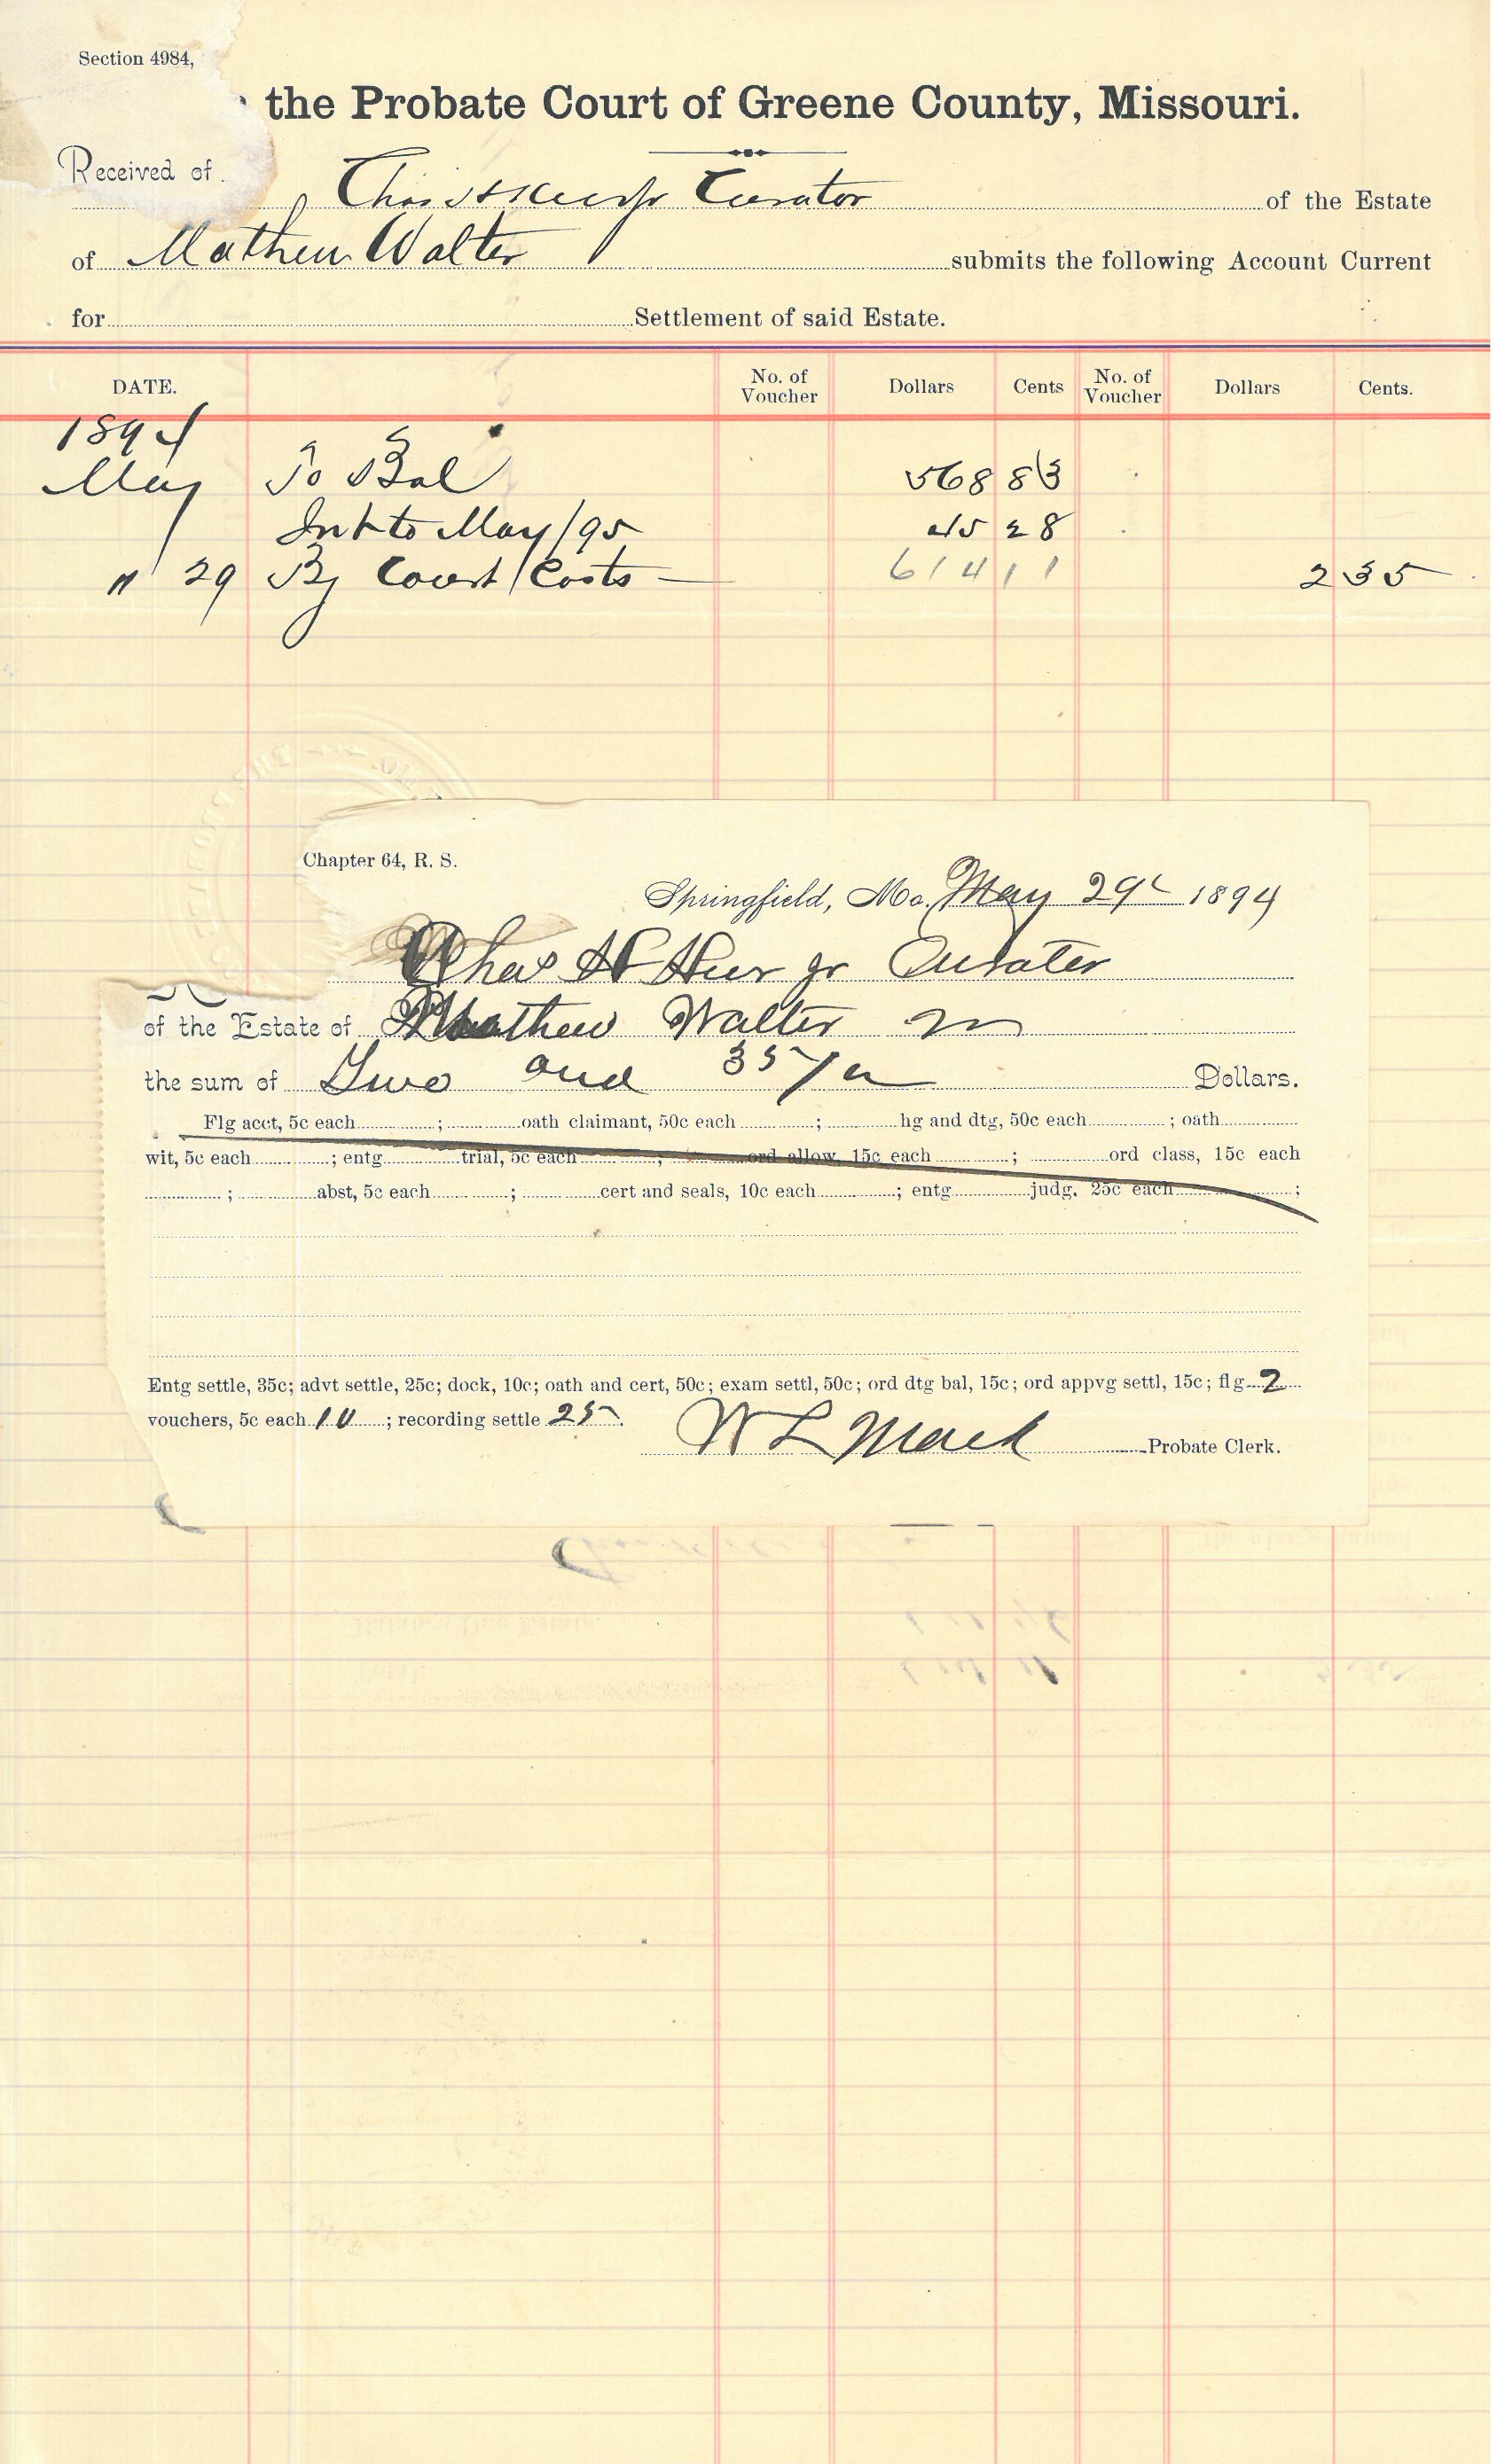 Section 4984,
the Probate Court of Greene County, Missouri.
Received of
Chas Curator of the Estate
of Mathew Walter submits the following Account Current
for Settlement of said Estate.
DATE. No. of Voucher Dollars Cents No. of Voucher Dollars Cents.
1894
May To Bal 568 83
Int to May/95 45 28
" 29 By Court Costs — 614 11 2 35
Chapter 64, R. S.
Springfield, Mo. May 29 1894
Chas H Heer jr Curator
of the Estate of Mathew Walter
the sum of Two and 35/ Dollars.
Flg acct, 5c each ; oath claimant, 50c each ; hg and dtg, 50c each ; oath
wit, 5c each ; entg trial, 5c each ; ord allow, 15c each ; ord class, 15c each
; abst, 5c each ; cert and seals, 10c each ; entg judg. 25c each ;
Entg settle, 35c; advt settle, 25c; dock, 10c; oath and cert, 50c; exam settl, 50c; ord dtg bal, 15c; ord appvg settl, 15c; flg 2
vouchers, 5c each 10 ; recording settle 25.
W L Mack Probate Clerk.